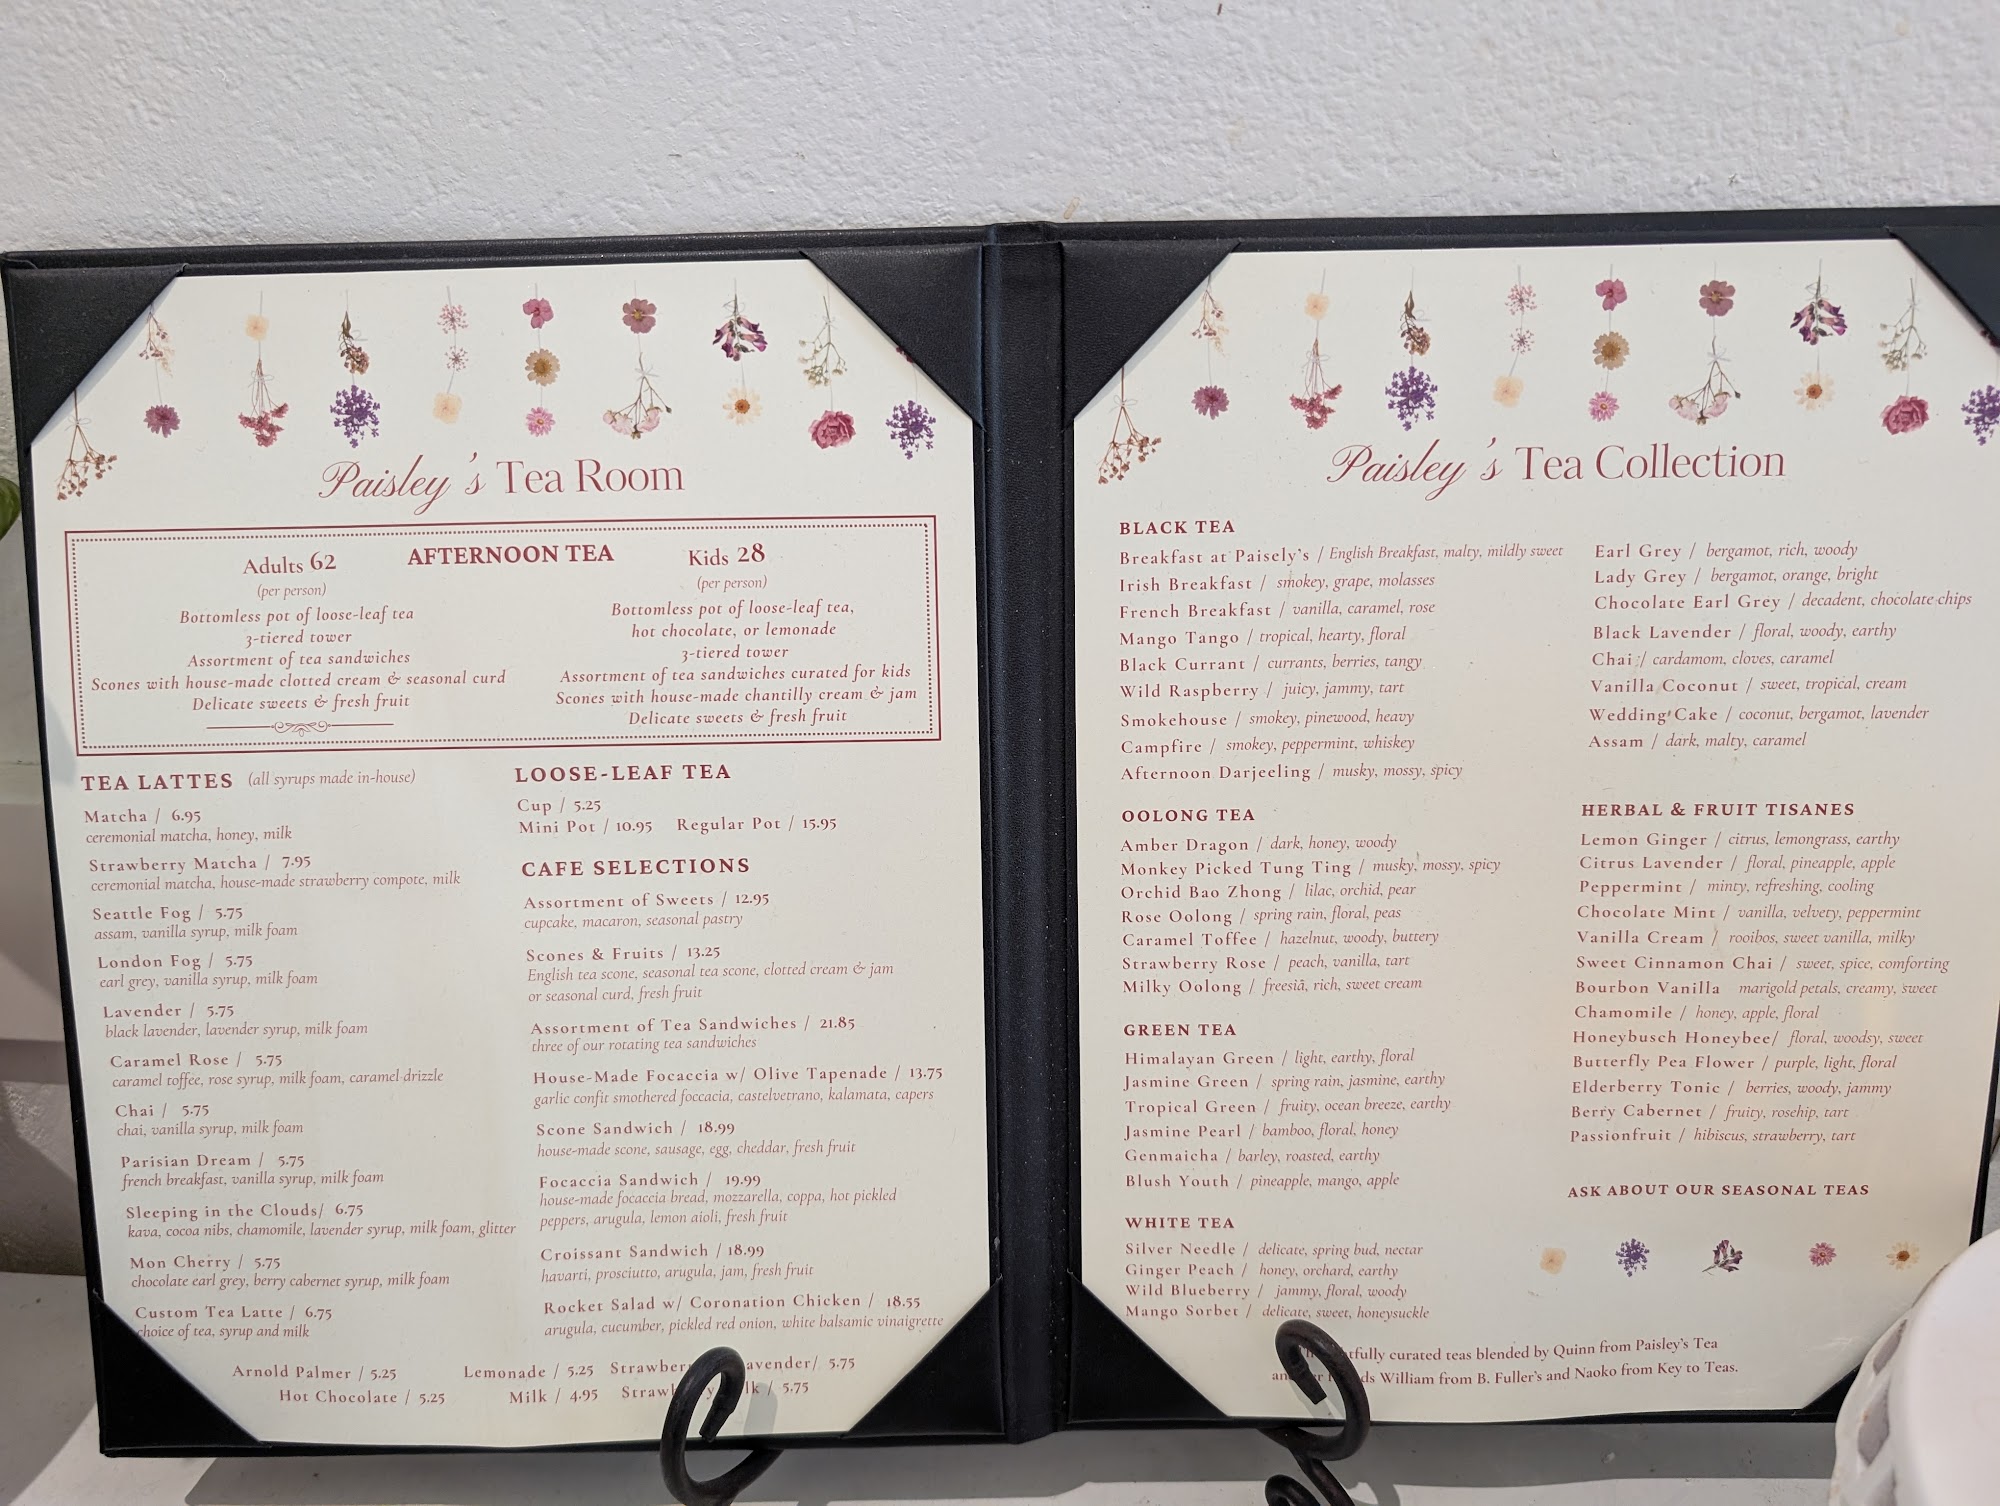 Paisley's Tea Room
AFTERNOON TEA
Adults 62
(per person)
Bottomless pot of loose-leaf tea
3-tiered tower
Assortment of tea sandwiches
Scones with house-made clotted cream & seasonal curd
Delicate sweets & fresh fruit
Kids 28
(per person)
Bottomless pot of loose-leaf tea,
hot chocolate, or lemonade
3-tiered tower
Assortment of tea sandwiches curated for kids
Scones with house-made chantilly cream & jam
Delicate sweets & fresh fruit
TEA LATTES (all syrups made in-house)
Matcha / 6.95
ceremonial matcha, honey, milk
Strawberry Matcha / 7.95
ceremonial matcha, house-made strawberry compote, milk
Seattle Fog / 5.75
assam, vanilla syrup, milk foam
London Fog / 5.75
earl grey, vanilla syrup, milk foam
Lavender / 5.75
black lavender, lavender syrup, milk foam
Caramel Rose / 5.75
caramel toffee, rose syrup, milk foam, caramel drizzle
Chai / 5.75
chai, vanilla syrup, milk foam
Parisian Dream / 5.75
french breakfast, vanilla syrup, milk foam
Sleeping in the Clouds/ 6.75
kava, cocoa nibs, chamomile, lavender syrup, milk foam, glitter
Mon Cherry / 5.75
chocolate earl grey, berry cabernet syrup, milk foam
Custom Tea Latte / 6.75
choice of tea, syrup and milk
LOOSE-LEAF TEA
Cup / 5.25
Mini Pot / 10.95 Regular Pot / 15.95
CAFE SELECTIONS
Assortment of Sweets / 12.95
cupcake, macaron, seasonal pastry
Scones & Fruits / 13.25
English tea scone, seasonal tea scone, clotted cream & jam
or seasonal curd, fresh fruit
Assortment of Tea Sandwiches / 21.85
three of our rotating tea sandwiches
House-Made Focaccia w/ Olive Tapenade / 13.75
garlic confit smothered foccacia, castelvetrano, kalamata, capers
Scone Sandwich / 18.99
house-made scone, sausage, egg, cheddar, fresh fruit
Focaccia Sandwich / 19.99
house-made focaccia bread, mozzarella, coppa, hot pickled
peppers, arugula, lemon aioli, fresh fruit
Croissant Sandwich / 18.99
havarti, prosciutto, arugula, jam, fresh fruit
Rocket Salad w/ Coronation Chicken / 18.55
arugula, cucumber, pickled red onion, white balsamic vinaigrette
Arnold Palmer / 5.25 Lemonade / 5.25 / 5.75
Hot Chocolate / 5.25 Milk / 4.95 / 5.75
Paisley's Tea Collection
BLACK TEA
Breakfast at Paisely's / English Breakfast, malty, mildly sweet
Irish Breakfast / smokey, grape, molasses
French Breakfast / vanilla, caramel, rose
Mango Tango / tropical, hearty, floral
Black Currant / currants, berries, tangy
Wild Raspberry / juicy, jammy, tart
Smokehouse / smokey, pinewood, heavy
Campfire / smokey, peppermint, whiskey
Afternoon Darjeeling / musky, mossy, spicy
Earl Grey / bergamot, rich, woody
Lady Grey / bergamot, orange, bright
Chocolate Earl Grey / decadent, chocolate chips
Black Lavender / floral, woody, earthy
Chai / cardamom, cloves, caramel
Vanilla Coconut / sweet, tropical, cream
Wedding Cake / coconut, bergamot, lavender
Assam / dark, malty, caramel
OOLONG TEA
Amber Dragon / dark, honey, woody
Monkey Picked Tung Ting / musky, mossy, spicy
Orchid Bao Zhong / lilac, orchid, pear
Rose Oolong / spring rain, floral, peas
Caramel Toffee / hazelnut, woody, buttery
Strawberry Rose / peach, vanilla, tart
Milky Oolong / freesia, rich, sweet cream
GREEN TEA
Himalayan Green / light, earthy, floral
Jasmine Green / spring rain, jasmine, earthy
Tropical Green / fruity, ocean breeze, earthy
Jasmine Pearl / bamboo, floral, honey
Genmaicha / barley, roasted, earthy
Blush Youth / pineapple, mango, apple
WHITE TEA
Silver Needle / delicate, spring bud, nectar
Ginger Peach / honey, orchard, earthy
Wild Blueberry / jammy, floral, woody
Mango Sorbet / delicate, sweet, honeysuckle
HERBAL & FRUIT TISANES
Lemon Ginger / citrus, lemongrass, earthy
Citrus Lavender / floral, pineapple, apple
Peppermint / minty, refreshing, cooling
Chocolate Mint / vanilla, velvety, peppermint
Vanilla Cream / rooibos, sweet vanilla, milky
Sweet Cinnamon Chai / sweet, spice, comforting
Bourbon Vanilla marigold petals, creamy, sweet
Chamomile / honey, apple, floral
Honeybusch Honeybee/ floral, woodsy, sweet
Butterfly Pea Flower / purple, light, floral
Elderberry Tonic / berries, woody, jammy
Berry Cabernet / fruity, rosehip, tart
Passionfruit / hibiscus, strawberry, tart
ASK ABOUT OUR SEASONAL TEAS
curated teas blended by Quinn from Paisley's Tea
William from B. Fuller's and Naoko from Key to Teas.